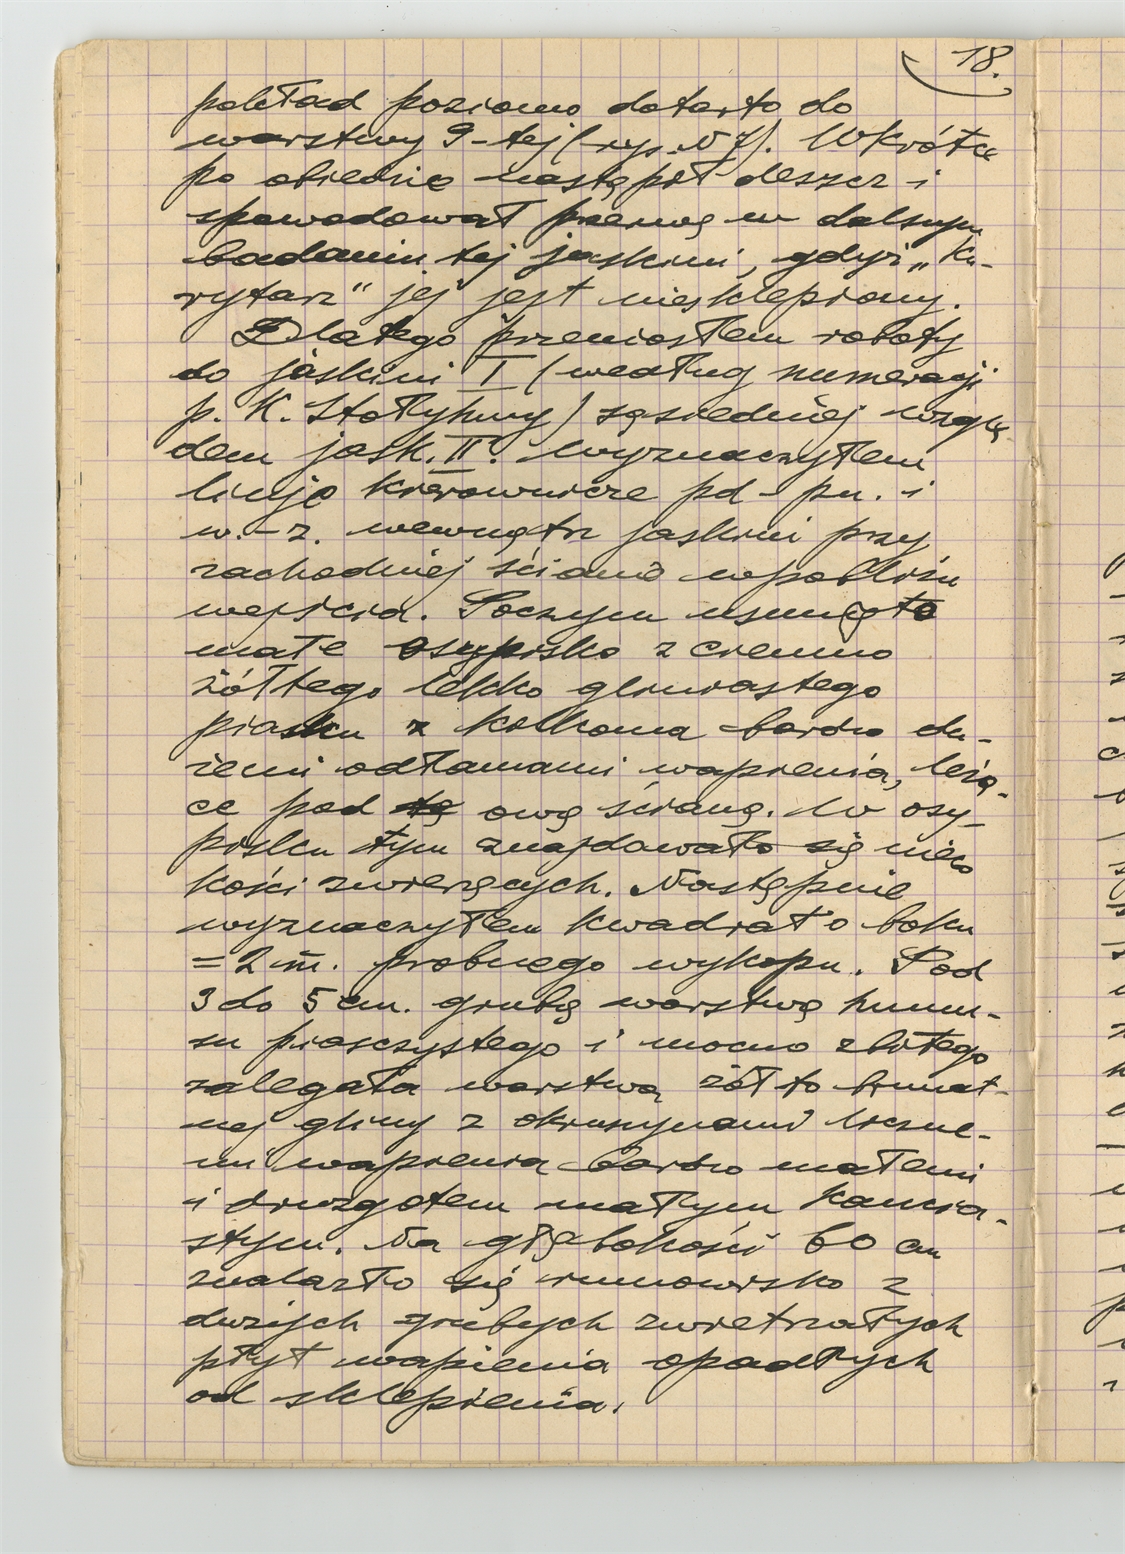 18.
pokład poziomo dotarto do
warstwy 9-tej (rys. N 7). Wkrótce
po obiedzie nastąpił deszcz i
spowodował przerwę w dalszym
badaniu tej jaskini, gdyż „ku-
rytarz" jej jest niesklepiony.
Dlatego przeniosłem roboty
do jaskini I (według numeracji
p. K. Stołyhwy) sąsiedniej wzglę
dem jask. II. Wyznaczyłem
linje kierownicze pd - pn. i
w. - z. wewnątrz jaskini przy
zachodniej ścianie wpobliżu
wejścia. Poczym usunięto
małe osypisko z ciemno
żółtego lekko gliniastego
piasku z kilkoma bardzo du-
żemi odłamami wapienia, leżą-
ce pod tą ową ścianą. W osy-
pisku tym znajdowało się nieco
kości zwierzęcych. Następnie
wyznaczyłem kwadrat o boku
= 2 m. probnego wykopu. Pod
3 do 5 cm. grubą warstwą humu-
su piasczystego i mocno zbitego
zalegała warstwa żółto brunat-
nej gliny z okruszynami liczne-
mi wapienia bardzo małemi
i druzgotem małym kancia-
stym. Na głębokości 60 cm
znalazło się rumowisko z
dużych grubych zwietrzałych
płyt wapienia opadłych
od sklepienia.